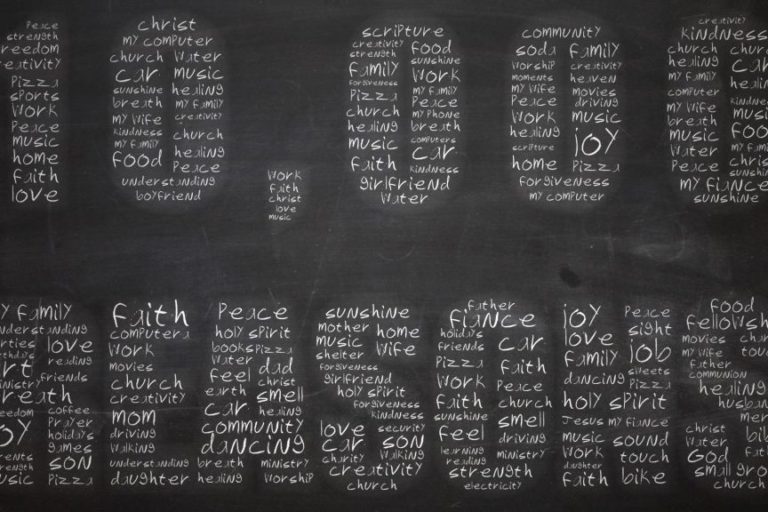 Peace
strength
sports
Pizza
Work
Peace
music
home
faith
love
christ
my computer
church Water
car music
sunshine healing
breath my family
my Wife creativity
kindness church
my family healing
food Peace
understanding
boyfriend
Work
faith
christ
love
music
scripture
creativity food
strength sunshine
family Work
forgiveness my family
Pizza Peace
church my phone
healing breath
music computers
family car
faith kindness
girlfriend
Water
community
soda family
Worship creativity
moments heaven
my Wife movies
Peace driving
Work music
healing joy
scripture
home Pizza
forgiveness
my computer
creativity
kindness
church
healing
my family
computer
my Wife
music
Water
Peace
my fiance
sunshine
family
love
reading
friends
coffee
Prayer
holidays
games
son
Pizza
faith
computera
Work
movies
church
creativity
mom
driving
Walking
understanding
daughter
Peace
holy spirit
books Pizza
Water dad
feel christ
earth smell
car healing
community
dancing
breath ministry
healing Worship
sunshine
mother home
music Wife
shelter
forgiveness
girlfriend
holy spirit
forgiveness
kindness
love security
car son
charity Walking
creativity
church
father
fiance
holidays car
friends
Pizza faith
Work Peace
faith church
sunshine smell
feel driving
learning ministry
reading
strength
electricity
joy Peace
love sight
family job
dancing sweets
Pizza
holy spirit
Jesus my fiance
music sound
Work touch
daughter
faith bike
food
movies
my Wife
father
communion
healing
christ
Water
God
church